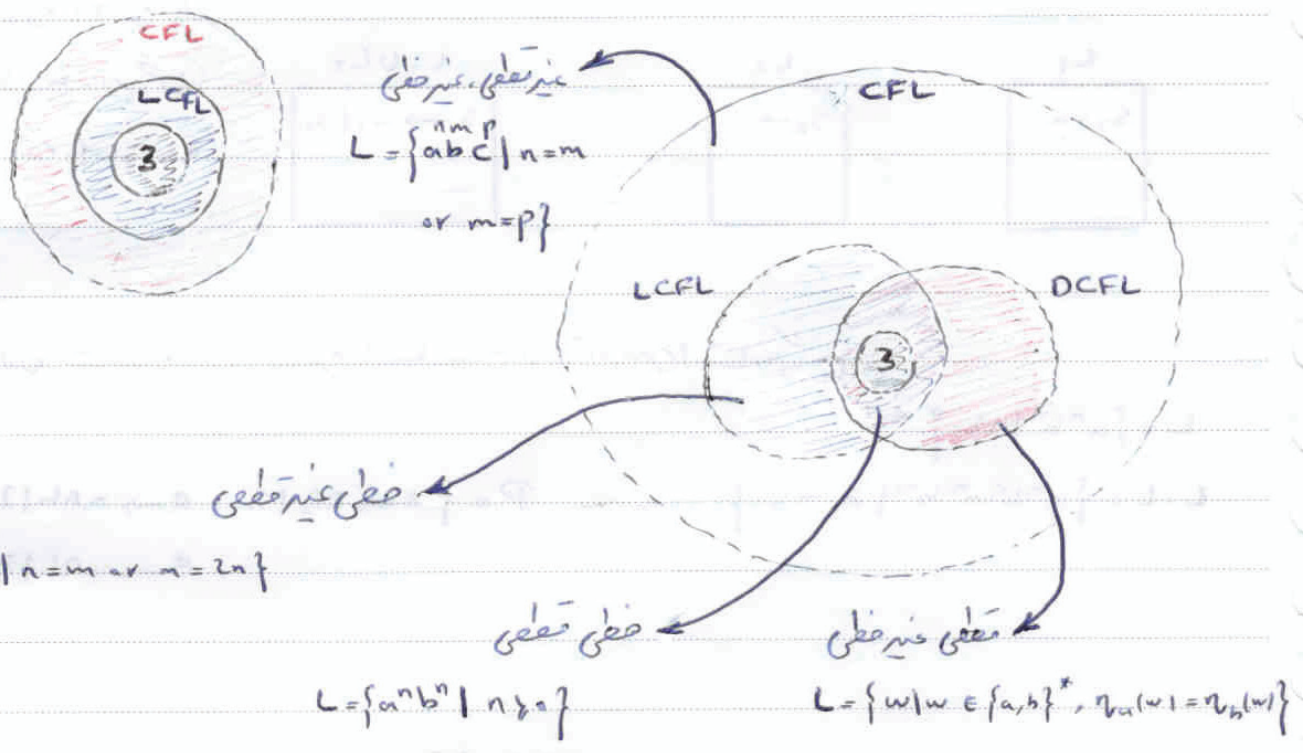 CFL
LCFL
3
غیر قطعی، غیر خطی
L = {aⁿbᵐcᵖ | n=m
or m=p}
CFL
LCFL
DCFL
3
خطی غیر قطعی
| n=m or m=2n}
خطی قطعی
L={aⁿbⁿ | n≥0}
قطعی غیر خطی
L = {w|w ∈ {a,b}*, nₐ(w)=n_b(w)}